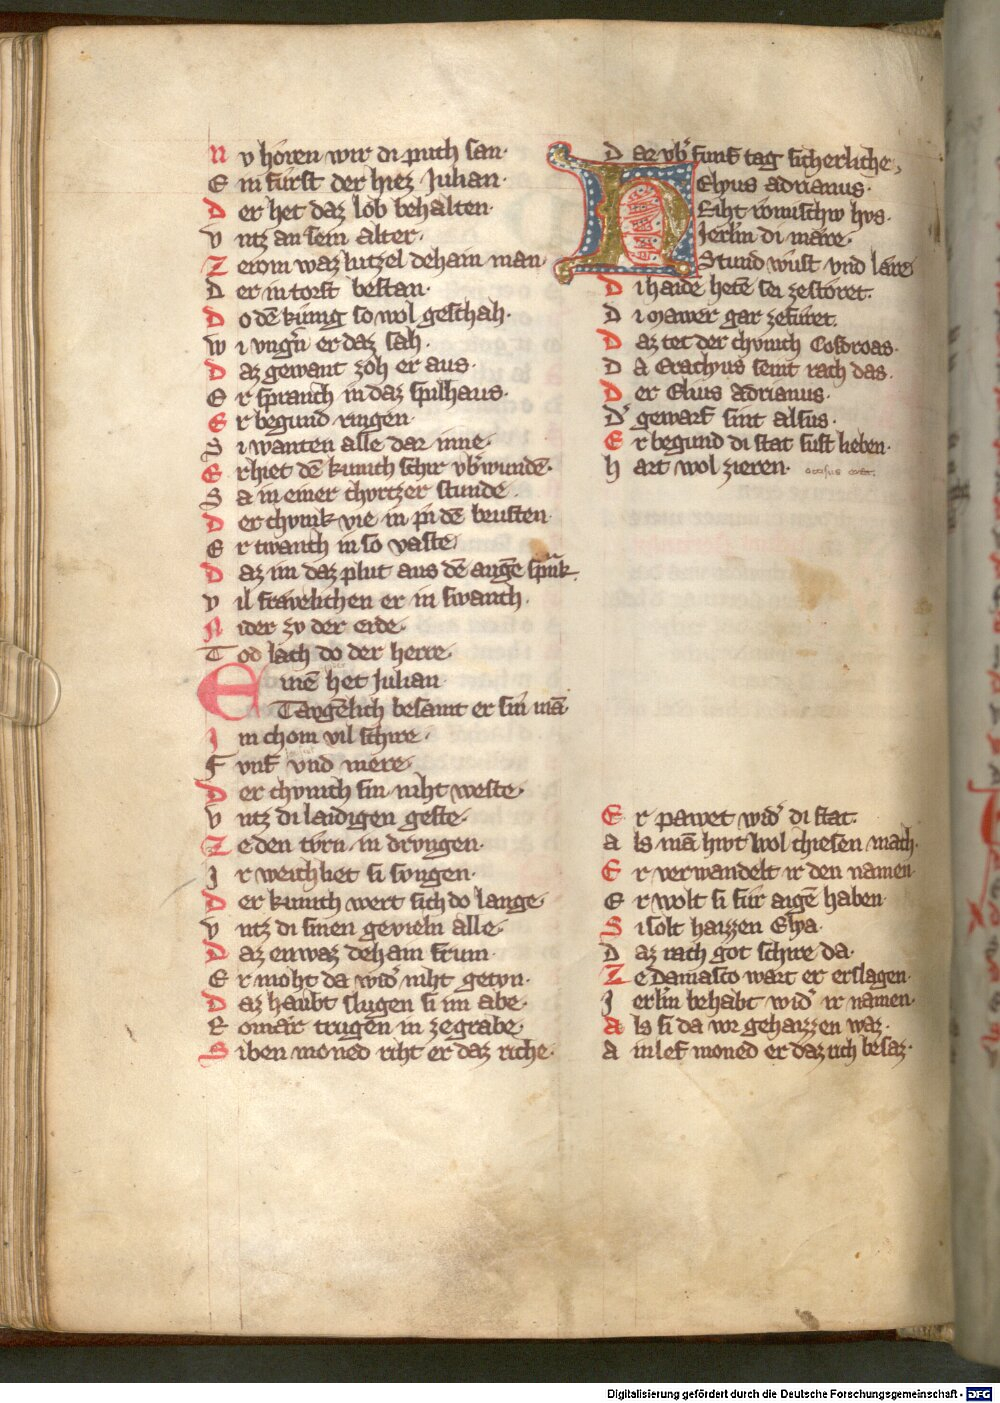 N v horen wir di puch san·
E in furst der hiez Julian·
D er het daz lob behalten·
V ntz an sein alter·
Z erom waz lutzel dehain man·
D er in torst bestan·
D o dē kunig so wol geschah·
W i vngn̄ er daz sah·
D az gewant zoh er aus·
E r sprauch in daz spilhaus·
E r begund ringen·
S i wanten alle dar inne·
E r hiet dē kunich schir vb̓wundē·
S a in einer churtzer stunde·
D er chunik vie in pi dē brusten·
E r twanch in so vaste·
D az im daz plut aus dē augē
V il fravelichen er in swanch·
N ider zv der erde·
T od lach do der herre·
E inē het Julian
Taugēlich besamt er sin mā·
I m chom vil schire·
F vnf vnd mere·
D er chunich sin niht weste·
V ntz di laidigen geste·
Z e den türn in drvngen·
I r weichliet si svngen·
D er kunich wert sich do lange·
V ntz di sinen gevieln alle·
D az enwaz dehain frum·
E r moht da wid̓ niht getvn·
D az haubt slugen si im abe·
R omār trugen in ze grabe·
S iben moned riht er daz riche·
D ar vb̓ funf tag sicherliche·
N Elyus Adrianus·
Riht romischw hvs·
Jerlm̄ di māre·
Stund wust vnd lāre
D i haidē hetē sei zestoret·
D i mawer gar zefuret·
D az tet der chunich Cosdroas·
D a Erachyus seint rach das·
D er Elius Adrianus·
D̓ gewarf sint alsus·
E r begund di stat sust lieben·
H art wol zieren·
E r pawet wid̓ di stat·
A ls mā hivt wol chiesen mach·
E r verwandelt ir den namen·
E r wolt si fur aigē haben·
S i solt haizzen Elya·
D az rach got schire da·
Z e Damasco wart er erslagen·
J erlm̄ behabt wid̓ ir namen·
A ls si da vor gehaizzen waz·
A inlef moned er daz rich besaz·
Digitalisierung gefördert durch die Deutsche Forschungsgemeinschaft - DFG